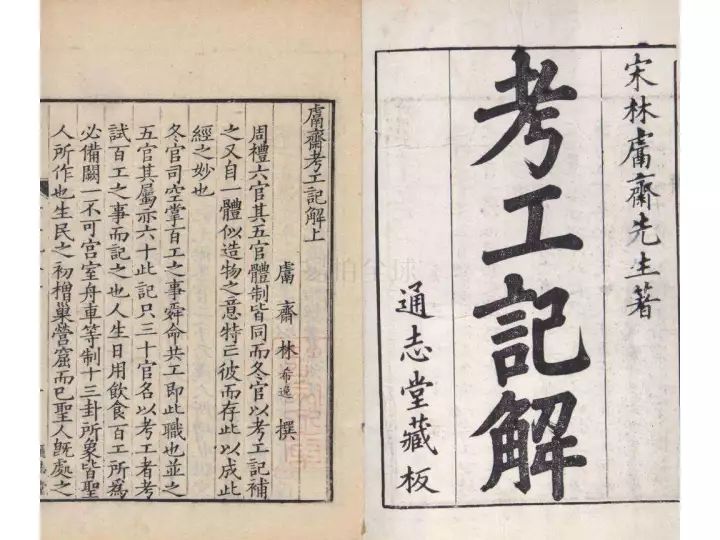 宋林鬳齋先生著
考工記解
通志堂藏板
鬳齋考工記解上
鬳齋林希逸 撰
周禮六官其五官體制皆同而冬官以考工記補
之又自一體似造物之意特亡彼而存此以成此
經之妙也
冬官司空掌百工之事舜命共工即此職也並之
五官其屬亦六十此記只三十官名以考工者考
試百工之事而記之也人生日用飲食百工所爲
必備闕一不可宮室舟車等制十三卦所象皆聖
人所作也生民之初橧巢營窟而已聖人既處之